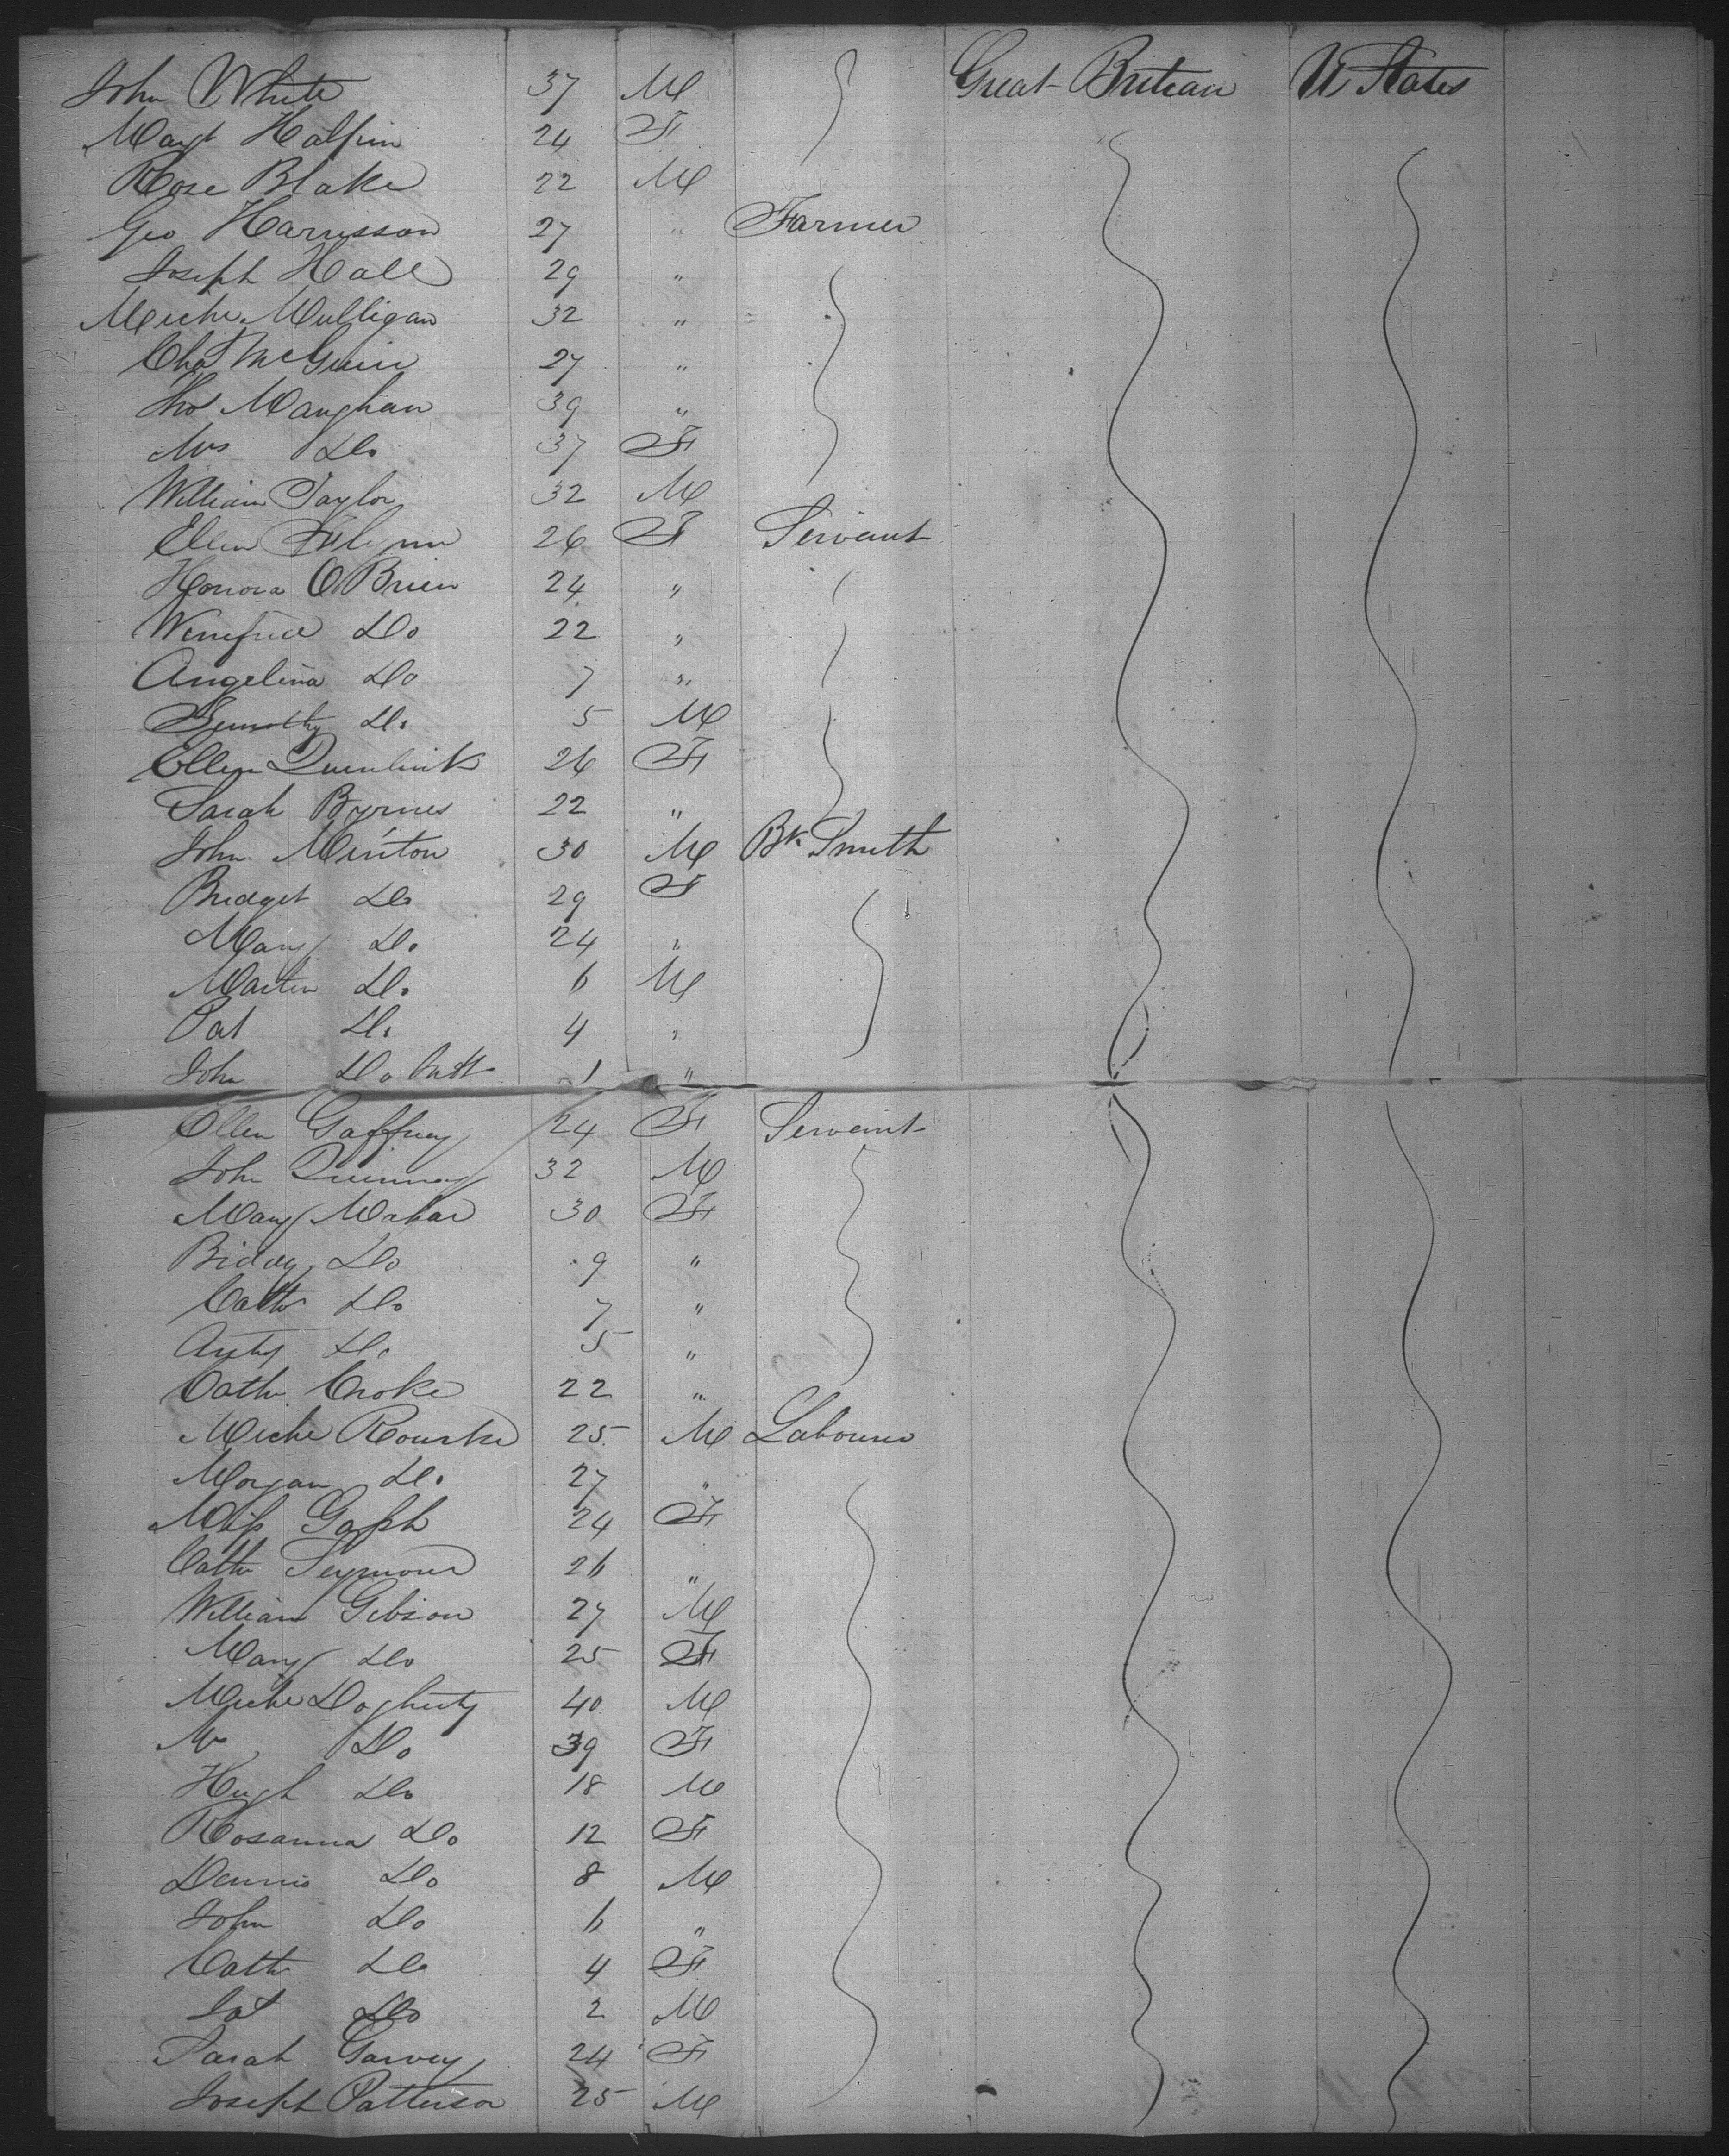 John White 37 M Great Britian U States
Margt Halpin 24 F
Rose Blake 22 M
Geo Harrisson 27 " Farmer
Joseph Hall 29 "
Michl Mulligan 32 "
Chas McGuire 27 "
Thos Maughan 39 "
Mrs Do 37 F
William Taylor 32 M
Ellen Flynn 26 F Servant
Honora O Brien 24 "
Winefred Do 22 "
Angelina Do 7 "
Do 5 M
Ellen 26 F
Sarah Byrnes 22 "
John Minton 30 M Bk Smith
Bridget Do 29 F
Mary Do 24 "
Martin Do 6 M
Pat Do 4 "
John Do 1 "
Ellen Gaffney 24 F Servant
John 32 M
Mary Mahar 30 F
Biddy Do 9 "
Cath Do 7 "
Do 5 "
Cath Croke 22 "
Michl Rourke 25 M Labourer
Morgan Do 27 "
Miss 24 F
Cath Seymour 26 "
William Gibson 27 M
Mary Do 25 F
Michl Dogherty 40 M
Do 39 F
Hugh Do 18 M
Rosanna Do 12 F
Dennis Do 8 M
John Do 6 "
Cath Do 4 F
Do 2 M
Sarah Garvey 24 F
Joseph Patterson 25 M